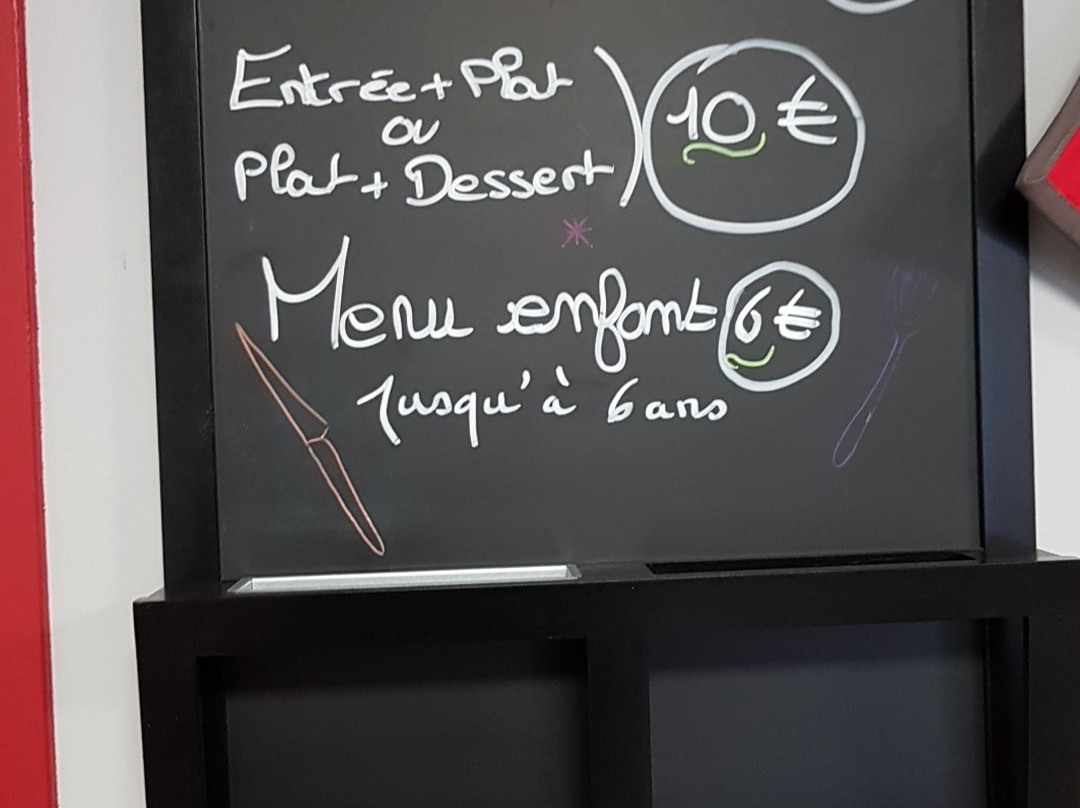 Entrée + Plat
ou
Plat + Dessert
10 €
Menu enfant 6 €
Jusqu'à 6 ans